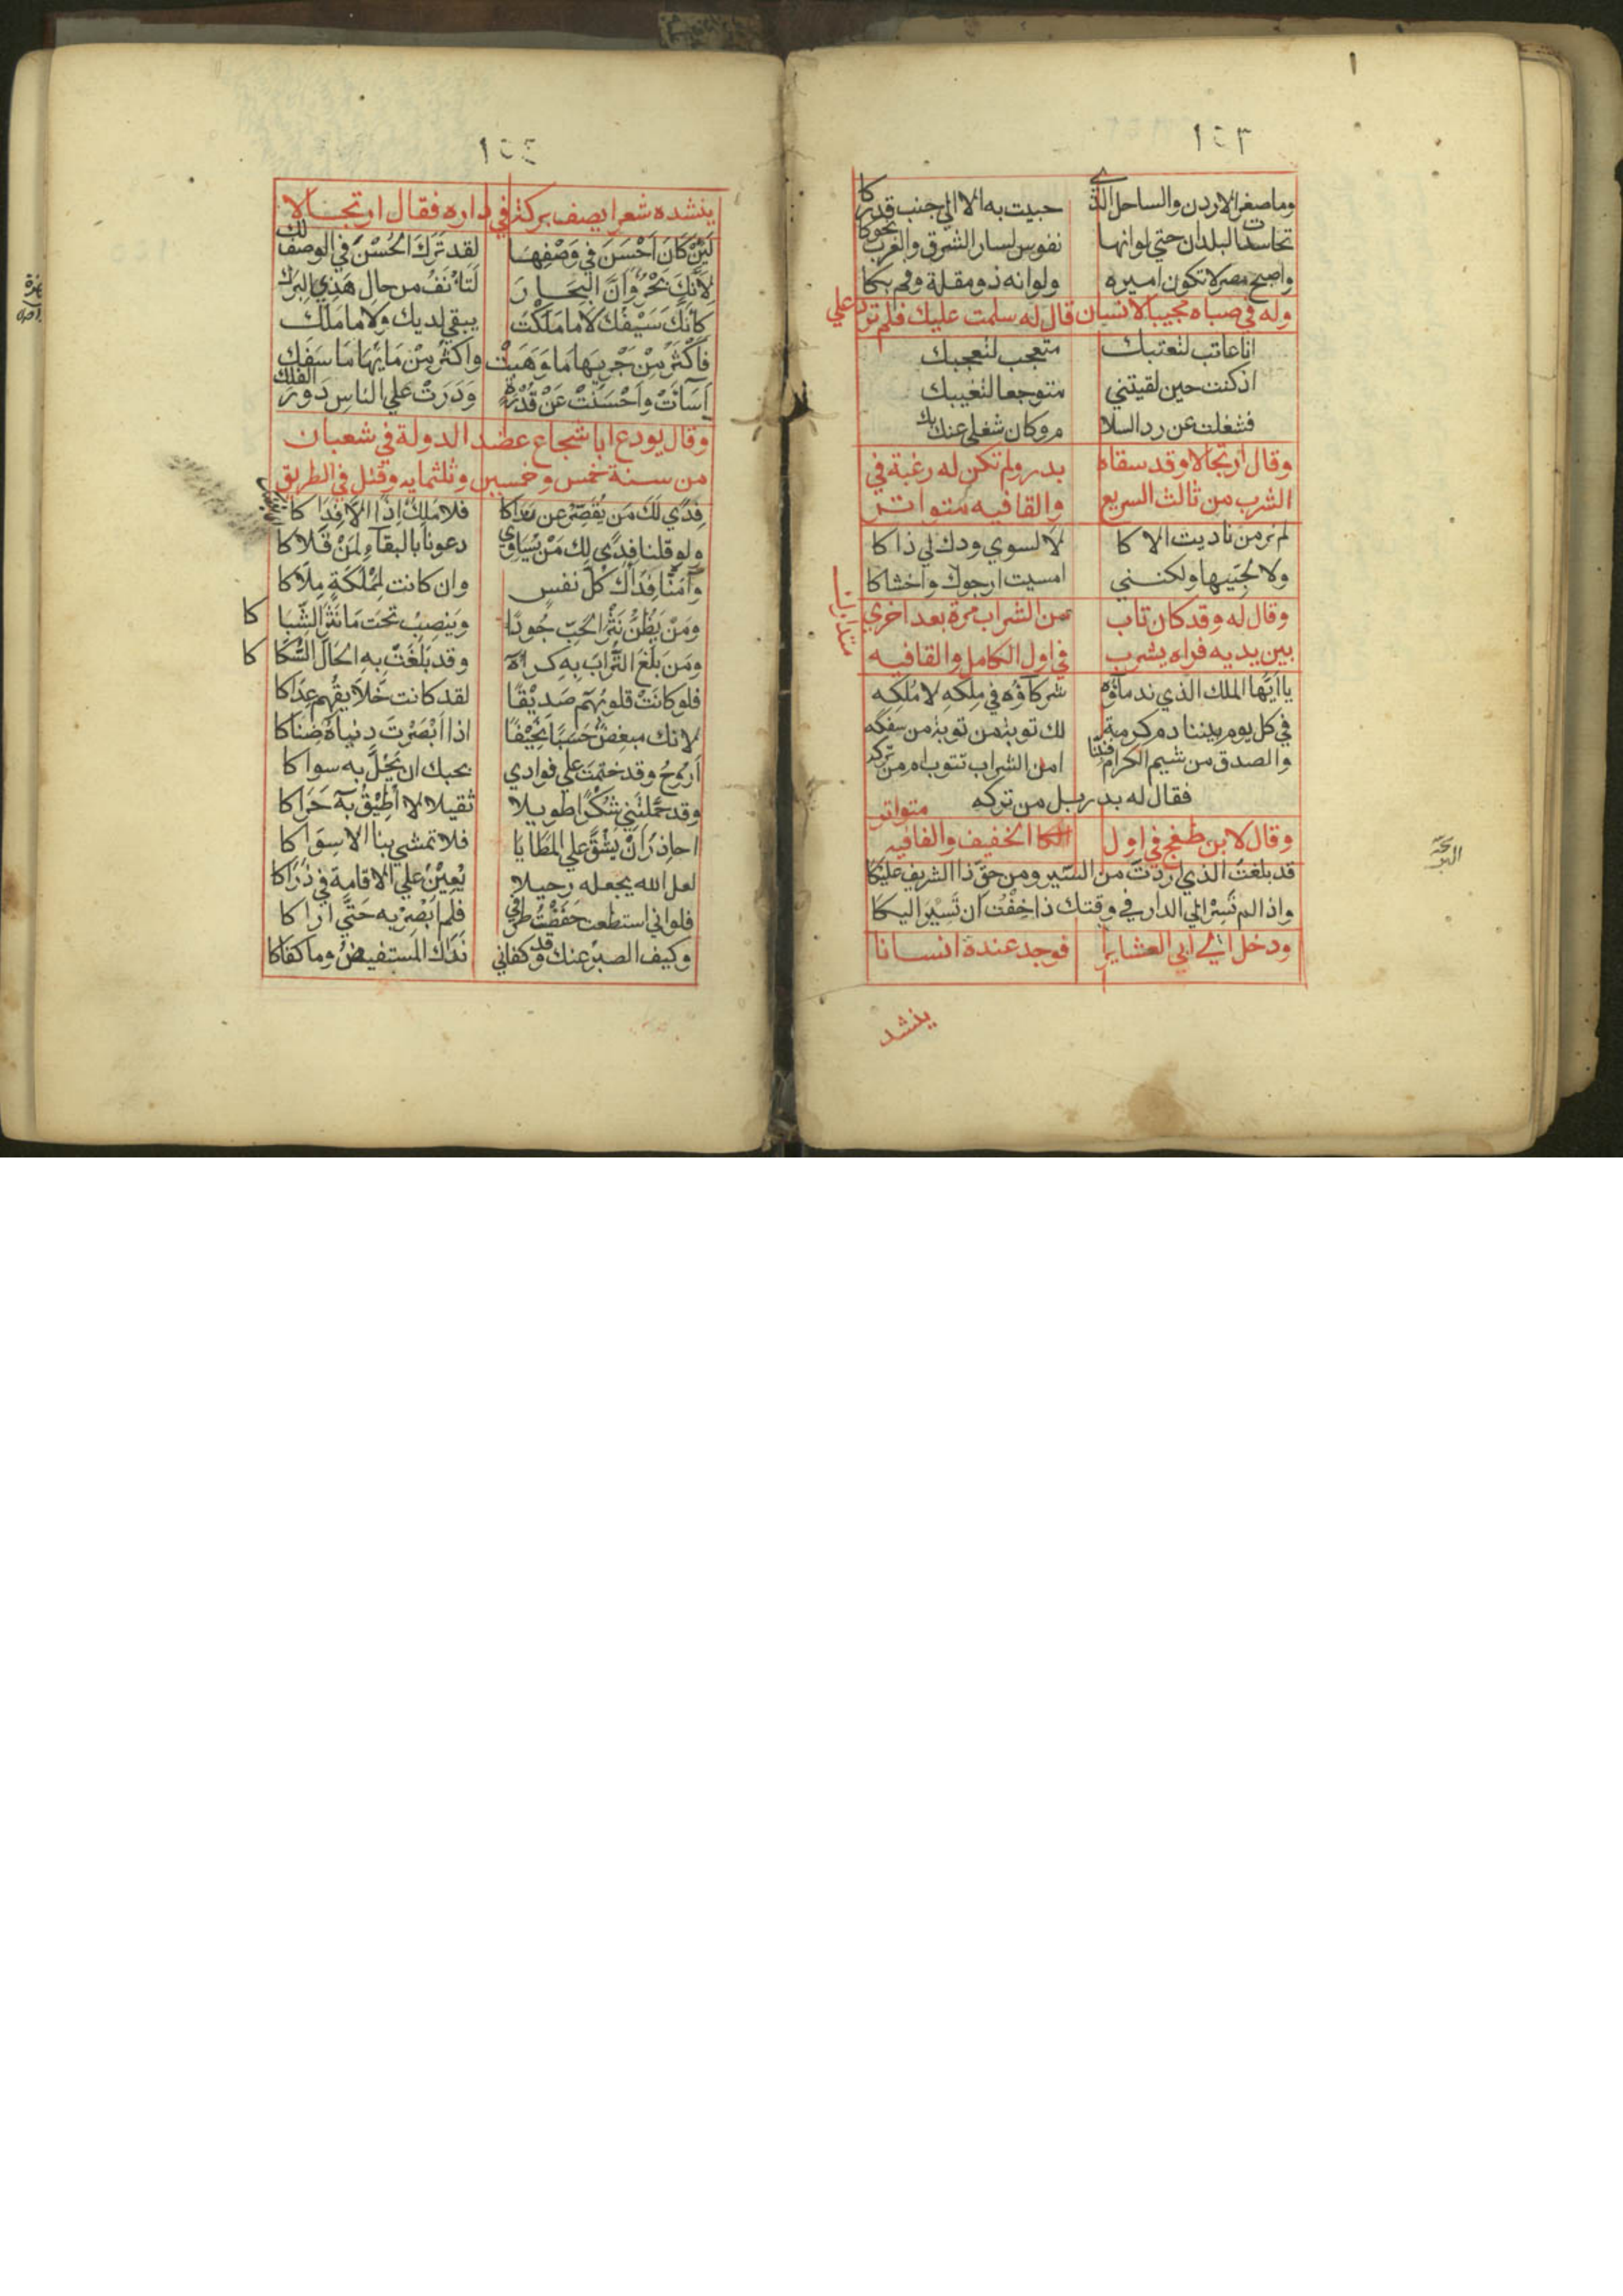 ١٤٣
وما صغر الاردن والساحل الذي حبيت به الا الي جنب قدركا
تحاسدت البلدان حتي لوانها نفوس لسار الشرق والغرب نحوكا
واصبح مصر لا تكون اميره ولوانه ذو مقلة وفم بكا
وله في صباه مجيبا لانسان قال له سلمت عليك فلم ترد علي
انا عاتب لتعتبك متعجب لتعجبك
اذ كنت حين لقيتني متوجعا لتغيبك
فشغلت عن رد السلا م وكان شغلي عنك بك
وقال ارتجالا وقد سقاه بدر ولم تكن له رغبة في
الشرب من ثالث السريع والقافيه متواتر
لم تر من ناديت الا كا لا لسوي ودك لي ذا كا
ولا لحبيها ولكنني امسيت ارجوك واخشاكا
وقال له وقد كان تاب من الشراب مرة بعد اخري
بين يديه فراه يشرب في اول الكامل والقافيه
متدارك
يا ايها الملك الذي ندماؤه شركاؤه في ملكه لا ملكه
في كل يوم بيننا دم كرمة لك توبة من توبة من سفكه
والصدق من شيم الكرام فنبنا امن الشراب تتوب ام من تركه
فقال له بدر بل من تركه
وقال لابن طغج في اول الخفيف والقافيه متواتر
قد بلغت الذي اردت من السير ومن حق ذا الشريف عليكا
واذا لم تسر الي الدار في وقتك ذا خفت ان تسير اليكا
ودخل الي ابي العشاير فوجد عنده انسانا
ينشد
١٤٤
ينشده شعرا يصف بركة في داره فقال ارتجالا
لَئِنْ كَانَ اَحْسَنَ في وَصْفِهَا لقد تَرَكَ الحُسْنَ في الوصف لك
لِاَنَّكَ بَحْرٌ وَاَنَّ البِحَارَ لَتَأْنَفُ من حال هَذِي البِرَك
كَاَنَّكَ سَيْفُكَ لا ما مَلَكْتَ يبقي لديك ولا ما ملك
فَاَكْثَرُ مِنْ جَرْيِهَا مَا وَهَبْتَ واكثر مِنْ مَائِهَا مَا سَفَك
اَسَأْتَ وَاَحْسَنْتَ عَنْ قُدْرَةٍ وَدُرْتَ علي الناس دَوْرَ الفلك
وقال يودع ابا شجاع عضد الدولة في شعبان
من سنة خمس وخمسين وثلثمايه وقتل في الطريق
فِدًي لَكَ مَن يُقَصِّرُ عن مَدَاكا فلا مَلِكٌ اِذًا اِلاَّ فِدَا كا
ولو قلنا فِدًي لك مَنْ يُسَاوِي دعونا بالبقاءِ لِمَنْ قَلاَكا
وَآمَنَّا فِدَآكَ كُلَّ نفس وان كانت لِمَمْلَكَةٍ مِلاَكا
ومَنْ يَظُنُّ نَثْرَ الحَبِّ جُودًا وَيَنْصِبُ تَحْتَ مَا نَثَرَ الشِّبَا كا
ومَن بَلَغَ التُّرَابَ بِهِ كراهُ وقد بَلَغَتْ بِهِ الحَالُ السُّكَا كا
فلو كَانَتْ قلوبُهُم صَدِيْقًا لقد كانت خَلاَيِقُهم عِدَاكا
لانك مبغِضٌ حَسَبًا نَحِيْفًا اذا اَبْصَرْتَ دنياهُ ضِنَاكا
اَرُوْحُ وقد خَتَمْتَ علي فوادي بحبك ان يَحُلَّ به سواكا
وقد حَمَّلْتَنِي شُكْرًا طويلا ثقيلا لا اُطِيْقُ بِهِ حَرَاكا
احاذِرُ اَنْ يَشُقَّ علي المَطَايَا فلا تمشي بنا الا سِوَاكا
لعل الله يجعله رحيلا يُعِيْنُ علي الاقامة في ذُرَاكا
فلو اني استطعت خفَضْتُ طرفي فلم اُبْصِرْ بِهِ حَتَّي اَرَا كا
وكيف الصبر عنك وقد كفاني نَدَاكَ المستفيضُ وما كفاكا